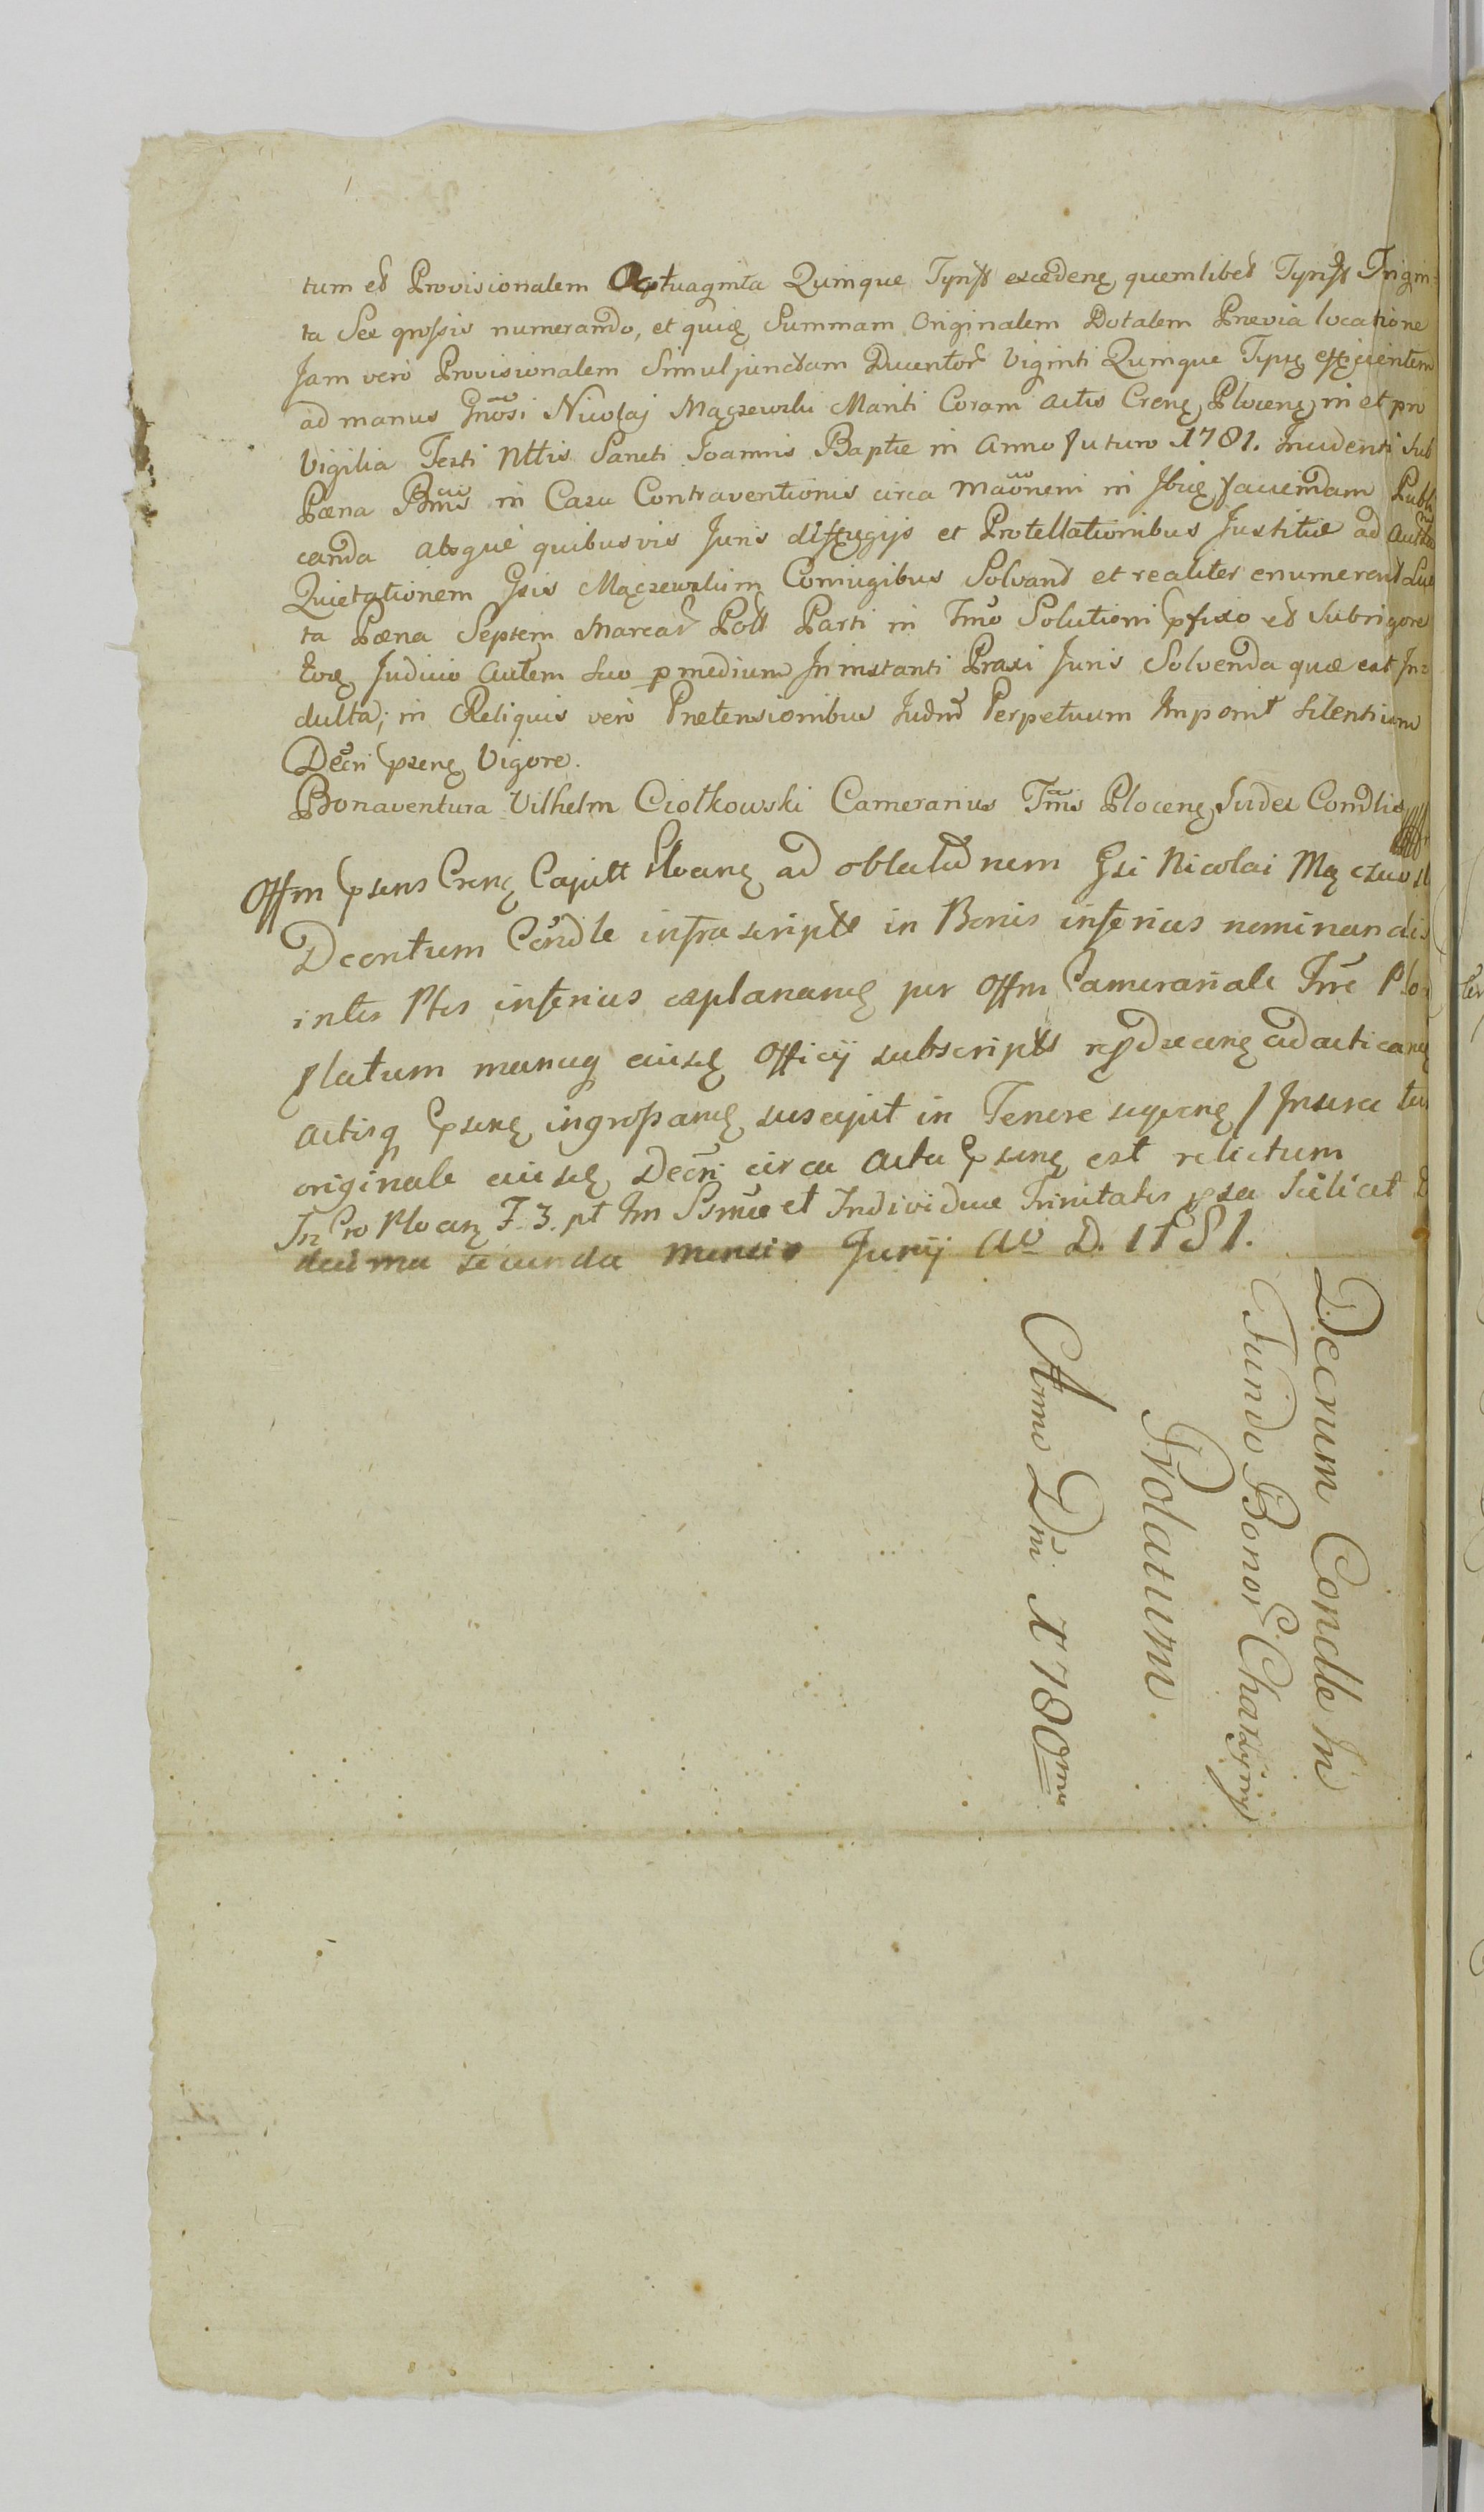 tum et Provisionalem Octuaginta Quinque Tynff excedenę quemlibet Tynff Trigin=
ta Sex grossis numerando, et quię Summam Originalem Dotalem Prævia locatione
Jam vero Provisionalem Simul junctam Ducentor Viginti Quinque Typę efficientem
ad manus Gnosi Nicolaj Mączewski Mariti Coram Actis Crenę Plocenę in et pro
Vigilia Festi Nttis Sancti Joannis Baptæ in Anno futuro 1781. Incidenti sub
Pæna Bnis in Casu Contraventionis circa maonem in Ibię faciendam Publi
canda absque quibusvis Juris diffugijs et Protellationibus Justitiæ ad
Quietationem Gsis Mączewskim Coniugibus Solvant et realiter enumerent Luc
ta Pæna Septem Marcar Poll Parti in Tmo Solutioni pfixo et Sub rigore
Judicio autem suo p medium In instanti Praxi Juris Solvenda quæ est In=
dulta; in Reliquis vero Prætensionibus Judm Perpetuum Imponit Silentium
Decri psenę Vigore.
Bonaventura Vilhelm Ciołkowski Camerarius Tris Plocenę Judex Condlis
Offm psens Crenę Capitt Plocenę ad oblatam nem Gsi Nicolai Mączews
Decretum Condle infrascripte in Bonis inferius nominandis
inter Ptes inferius explanandę per Offm Camerariale Trre Plo
platum manuq eiusdę Officij subscripts ad acticandę
actisq psenę ingrossandę suscepit in Tenore sequenę /Insere tur
originale eiusdę Decri circa Acta psenę est relictum
In Cro Plocenę F. 3. pt Im Ssmæ et Individuæ Trinitatis psa scilicet D
decima secunda mensis Junij Ao D. 1781.
Decrum Condle In
Fundo Bonor Charzyny
Prolatum
Anno Dni 1780mo